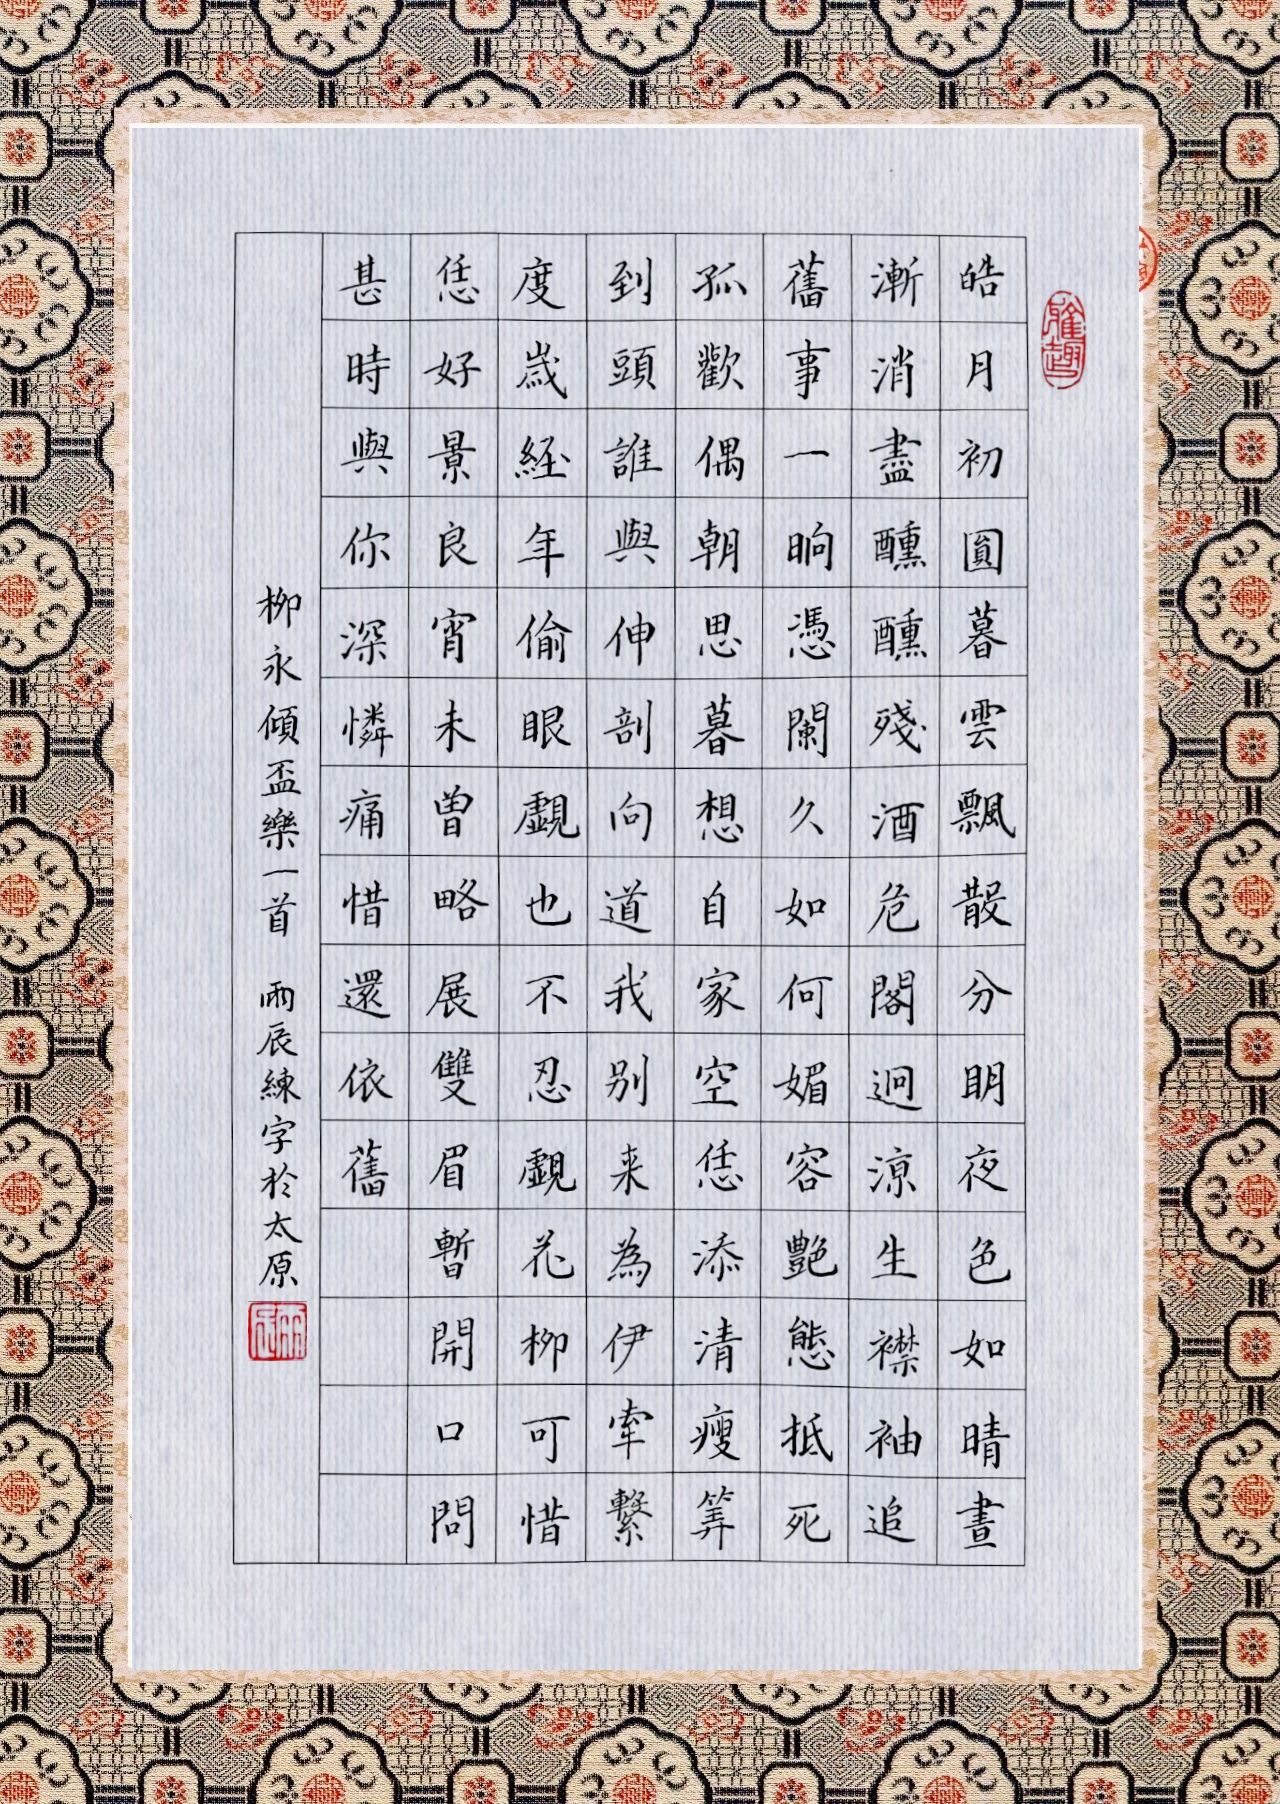 皓月初圓暮雲飄散分明夜色如晴晝
漸消盡醺醺殘酒危閣迥涼生襟袖追
舊事一晌憑闌久如何媚容艷態抵死
孤歡偶朝思暮想自家空恁添清瘦筭
到頭誰與伸剖向道我别来為伊牽繫
度歲經年偷眼覷也不忍覷花柳可惜
恁好景良宵未曾略展雙眉暫開口問
甚時與你深憐痛惜還依舊
柳永傾盃樂一首 雨辰練字於太原
雅趣
雨辰